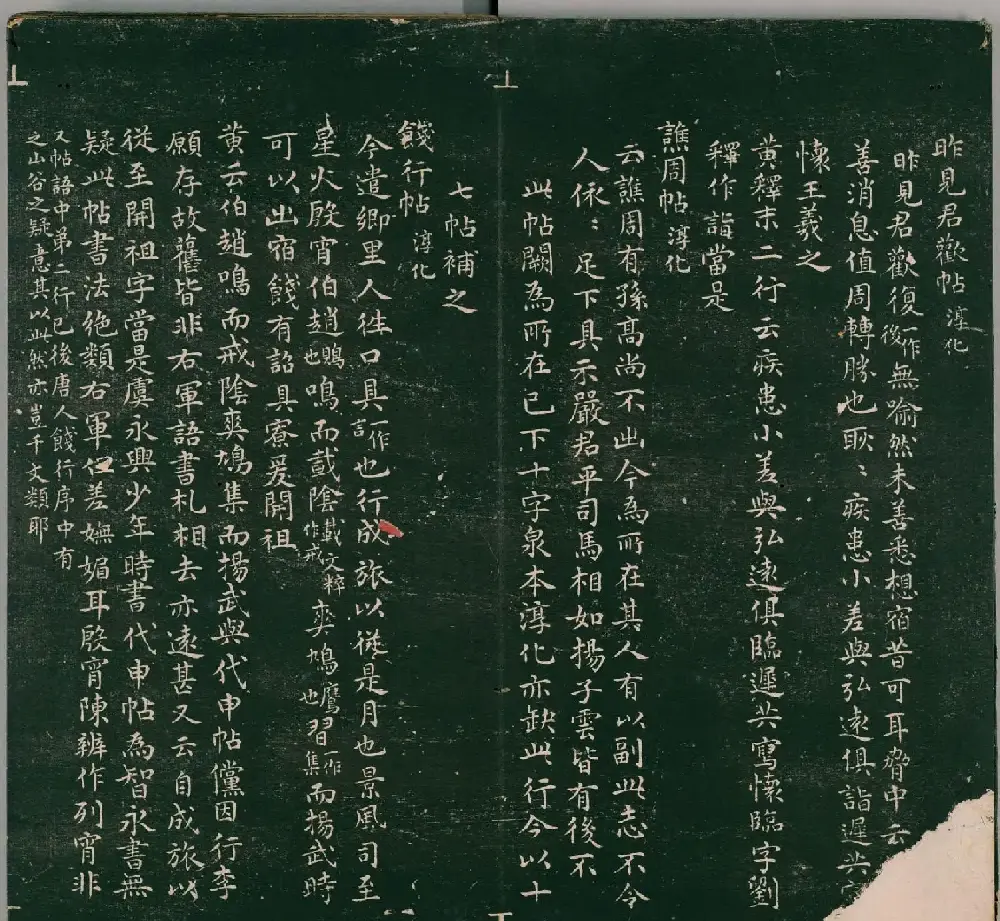 昨見君歡帖淳化
昨見君歡復一作後無喻然未善悉想宿昔可耳脅中云
善消息值周轉勝也耿〻疾患小差與弘遠俱詣遲共
懷王羲之
黃釋末二行云疾患小差與弘遠俱臨遲共寫懷臨字劉
釋作詣當是
譙周帖淳化
云譙周有孫高尚不出今為所在其人有以副此志不令
人依〻足下具示嚴君平司馬相如揚子雲皆有後不
此帖闕為所在已下十字泉本淳化亦缺此行今以十
七帖補之
餞行帖淳化
今遣鄉里人往口具一作言也行成旅以從是月也景風司至
星火殷宵伯趙鵙也鳴而戴陰戴文粹作戒爽鳩鷹也習一作集而揚武時
可以出宿餞有詔具寮爰開祖
黃云伯趙鳴而戒陰爽鳩集而揚武與代申帖儻因行李
願存故舊皆非右軍語書札相去亦遠甚又云自成旅以
從至開祖字當是虞永興少年時書代申帖為智永書無
疑此帖書法絕類右軍但差嫵媚耳殷宵陳辨作列宵非
又帖語中第二行已後唐人餞行序中有
之山谷之疑意其以此然亦豈千文類耶